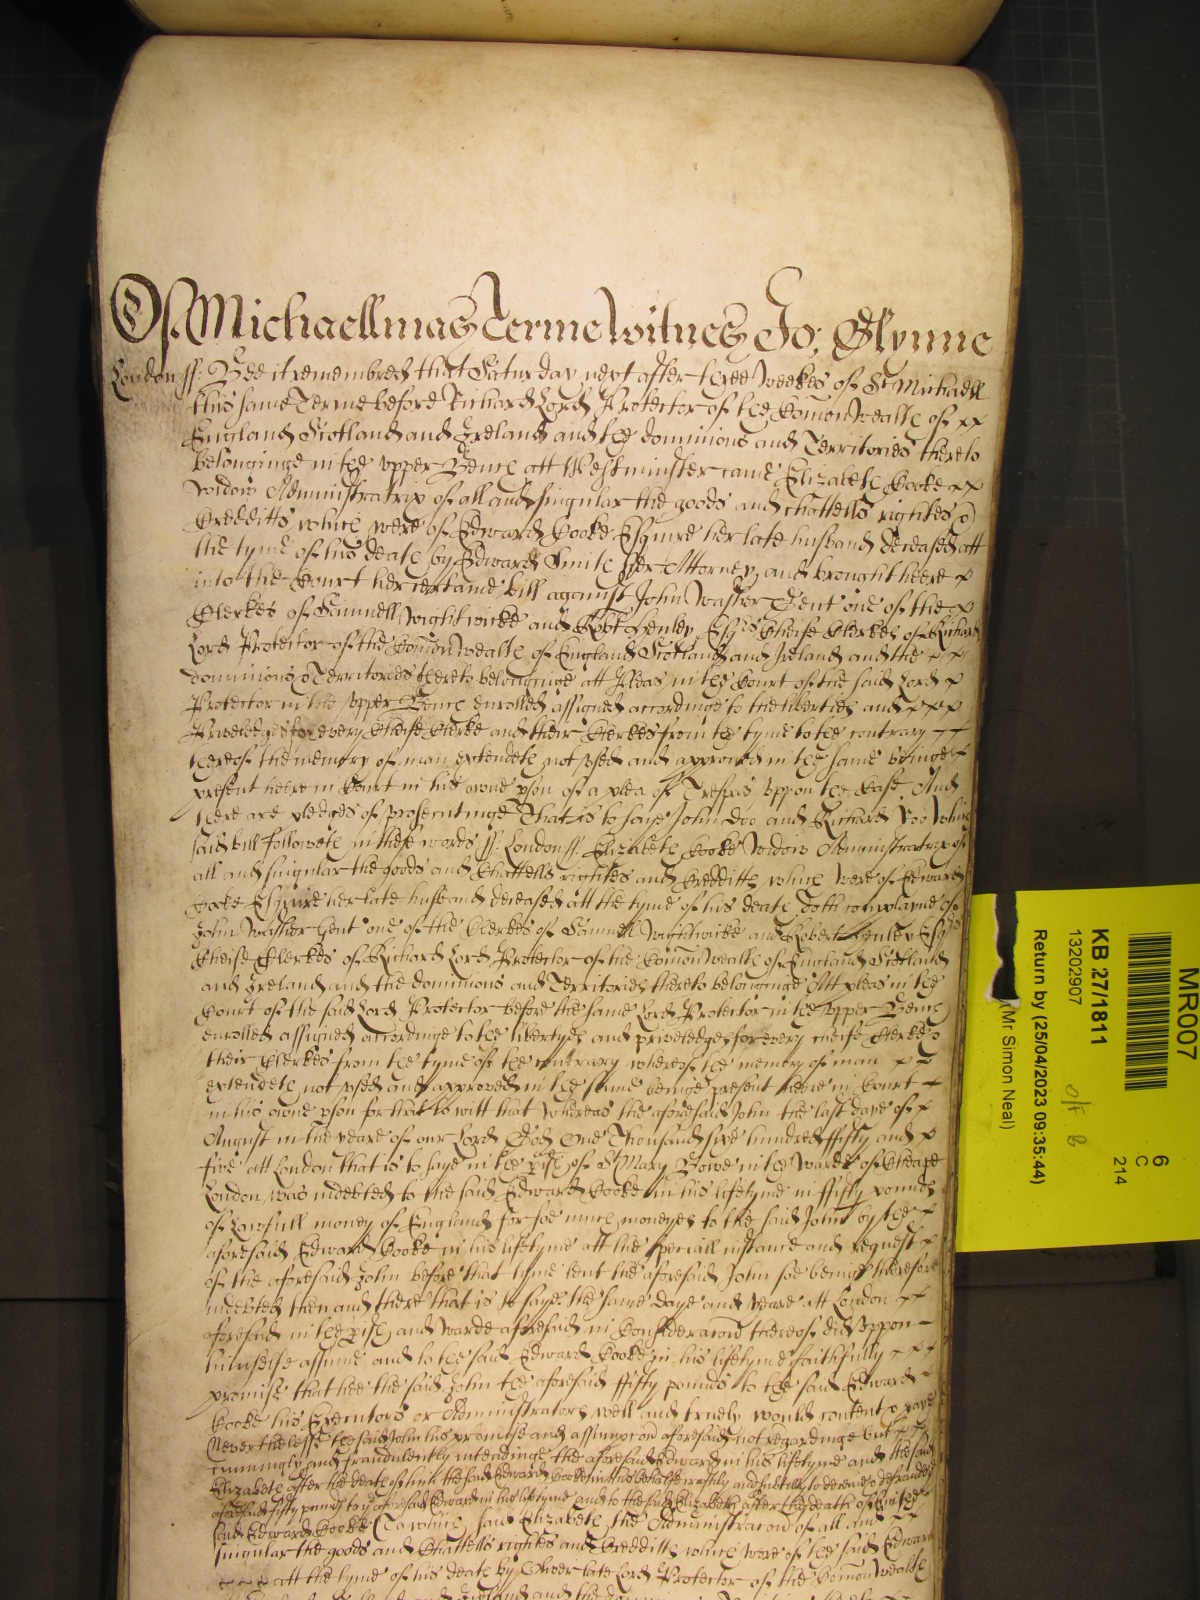 Of Michaellmas Terme Witnes Jo: Glynne
London ss: Bee it remembred that Saturday next after three Weekes of St Michaell
this same Terme before Richard Lord Protector of the Comon Wealth of
England Scotland and Ireland and the dominions and Territories thereto
belonginge in the vpper Bench att Westminster came Elizabeth Cooke
Widow Administratrix of all and singular the goods and chattells rightes &
Credditts which were of Edward Cooke Esquire her late husband deceased att
the tyme of his death by Edward Smith her Attorney and brought heere
into the Court her certaine bill against John Washer Gent one of the
Clerkes of Samuell Wightwicke and Robt Henley Esqrs Cheife Clerkes of Richard
Lord Protector of the Comon Wealth of England Scotland and Ireland and the
dominions & Territories thereto belonginge att Pleas in the Court of the said Lord
Protector in the vpper Bench enrolled assigned accordinge to the liberties and
Priveledges for every Cheife Clerke and their Clerkes from the tyme to the contrary
thereof the memory of man extendeth not vsed and approved in the same beinge
present heere in Court in his owne pson of a plea of Trespas vppon the Case And
there are pledges of prosecutinge That is to saye John Doe and Richard Roo Which
said bill followeth in these words ss: London ss: Elizabeth Cooke Widow Administratrix of
all and singular the goods and Chattells rightes and Credditts which were of Edward
Cooke Esquire her late husband deceased att the tyme of his death doth complayne of
John Washer Gent one of the Clerkes of Samuell Wightwicke and Robert Henley Esqrs
Cheife Clerkes of Richard Lord Protector of the Comon Wealth of England Scotland
and Ireland and the dominions and Territories thereto belonginge Att pleas in the
Court of the said Lord Protector before the same Lord Protector in the vpper Bench
enrolled assigned accordinge to the libertyes and priviledges for every cheife Clerke &
their Clerkes from the tyme of the contrary whereof the memory of man
extendeth not vsed and approved in the same beinge present heere in Court
in his owne pson for that to witt that Whereas the aforesaid John the last daye of
August in the yeare of our Lord God One Thousand sixe hundred ffifty and
five att London that is to saye in the pish of St Mary Bowe in the Warde of Cheape
London was indebted to the said Edward Cooke in his lifetyme in ffifty pounds
of Lawfull money of England for soe much moneyes to the said John by the
aforesaid Edward Cooke in his lifetyme att the speciall instance and request
of the aforesaid John before that tyme lent the aforesaid John soe beinge therefore
indebted then and there that is to saye the same daye and yeare att London
aforesaid in the pish and Warde aforesaid in Consideracon thereof did vppon
himselfe assume and to the said Edward Cooke in his lifetyme faithfully
promise that hee the said John the aforesaid ffifty pounds to the said Edward
Cooke his Executors or Administrators well and truely would content & paye
Neverthelesse the said John his promise and assumpcon aforesaid not regardinge but
cunningly and fraudulently intendinge the aforesaid Edward in his lifetyme and the said
Elizabeth after the death of him the said Edward Cooke in this behalfe craftily and subtilly to deceive & defraud the
aforesaid fifty pounds to ye aforesaid Edward in his lifetyme and to the said Elizabeth after the death of
said Edward Cooke (To which said Elizabeth the Administracon of all and
singular the goods and Chattells rightes and Credditts which were of the said Edward
att the tyme of his death by Oliver late Lord Protector of the Comon Wealth
Ireland and the
MR007
6
C
214
KB 27/1811
13202907
Return by (25/04/2023 09:35:44)
(Mr Simon Neal)